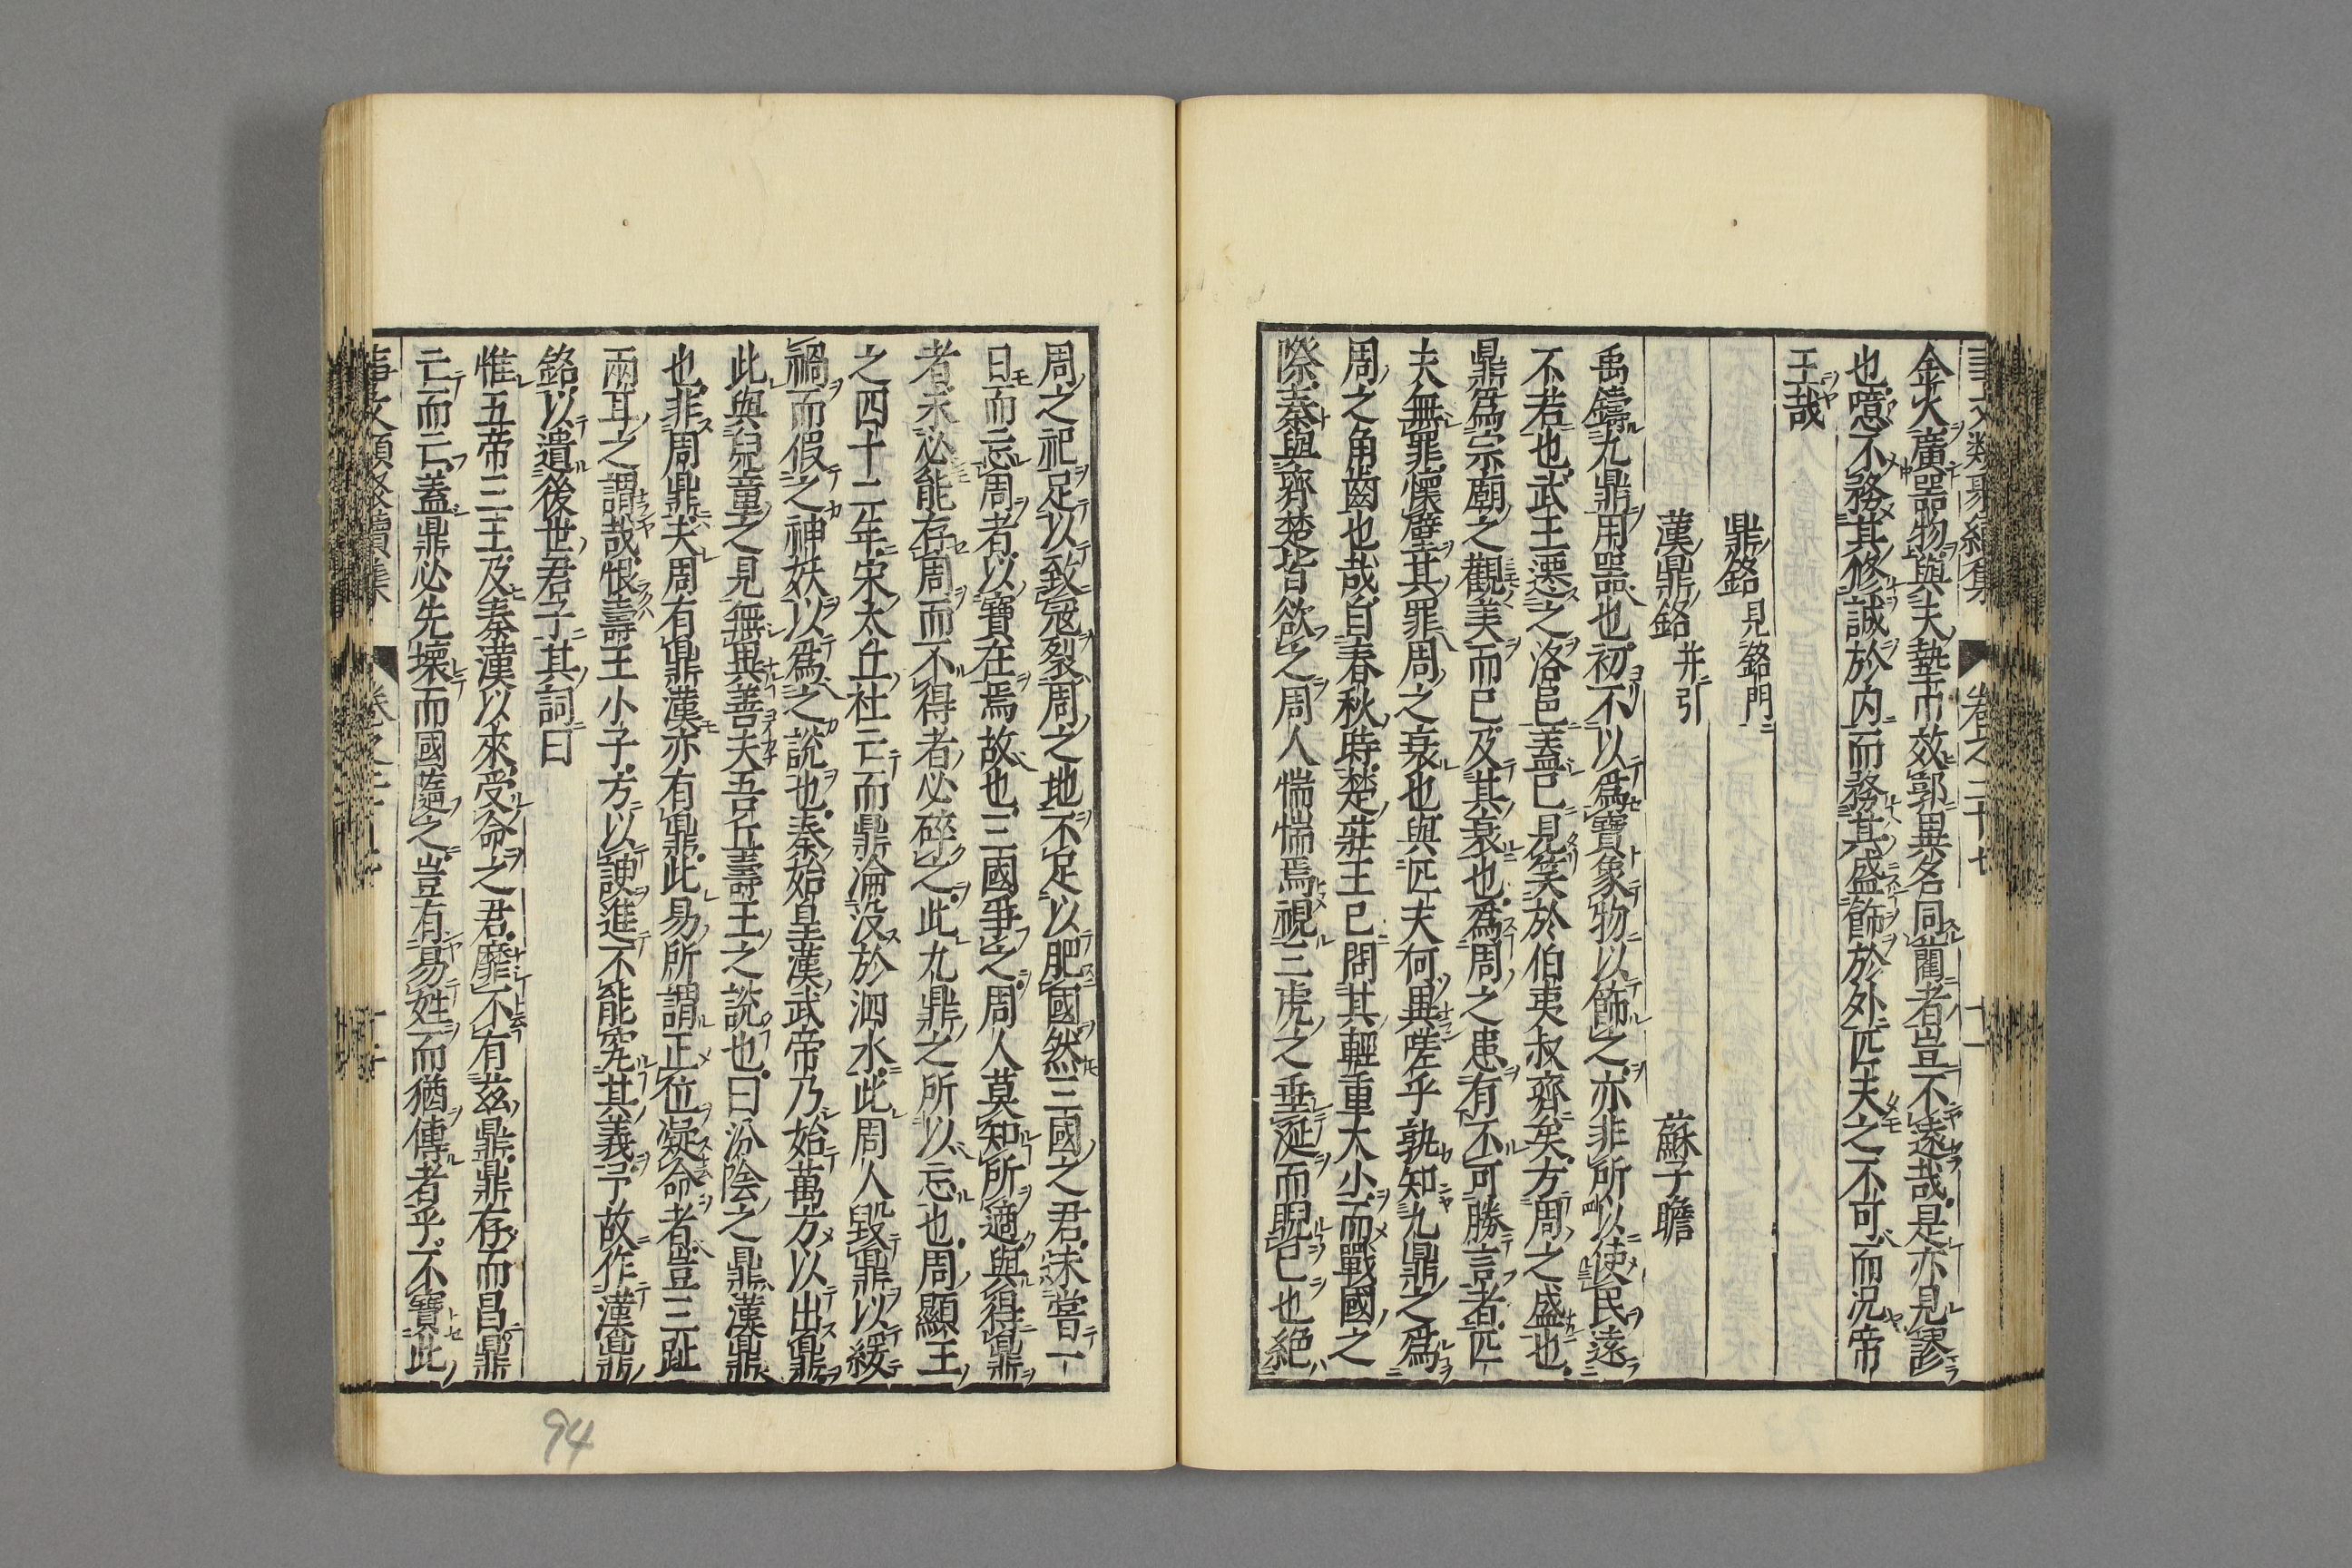 金犬廣噐物與夫墊巾效郭異名同藺者豈不遠哉是亦見
也噫不務其修誠於内而務其盛飾於外匹夫之不可而况帝
王哉
鼎銘見銘門
漢鼎銘并引 蘇子瞻
禹鑄九鼎用噐也初不以爲寶象物以飾之亦非所以使民遠
不若也武王遷之洛邑蓋已見笑於伯夷叔齊矣方周之盛也
鼎爲宗廟之觀美而已及其衰也爲周之患有不可勝言者匹
夫無罪懷璧其罪周之衰也與匹夫何異嗟乎孰知九鼎之爲
周之角齒也哉自春秋時楚莊王已問其輕重大小而戰國之
際秦與齊楚皆欲之周人惴惴焉視三虎之垂涎而睨已也絶
周之祀足以致冦裂周之地不足以肥國然三國之君未嘗一
日而忘周者以寶在焉故也三國爭之周人莫知所適與得鼎
者未必能存周而不得者必碎之此九鼎之所以忘也周顯王
之四十二年宋太丘社亡而鼎淪没於泗水此周人毀鼎以緩
禍而假之神妖以爲之說也秦始皇漢武帝乃始萬方以出鼎
此與兒童之見無異善夫吾丘壽王之說也曰汾陰之鼎漢鼎
也非周鼎夫周有鼎漢亦有鼎此易所謂正位凝命者豈三趾
兩耳之謂哉恨壽王小子方以諛進不能究其義予故作漢鼎
銘以遺後世君子其詞曰
惟五帝三王及秦漢以來受命之君靡不有茲鼎鼎存而昌鼎
亡而亡蓋鼎必先壞而國隨之豈有易姓而猶傳者乎不寶此